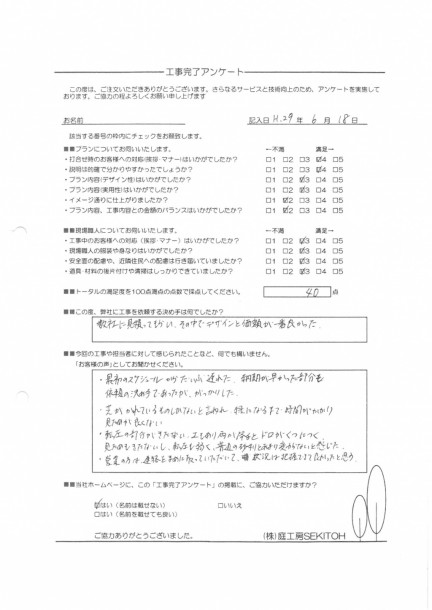 工事完了アンケート
この度は、ご注文いただきありがとうございます。さらなるサービスと技術向上のため、アンケートを実施して
おります。ご協力の程よろしくお願い申し上げます
お名前 記入日 H.29 年 6 月 18 日
該当する番号の枠内にチェックをお願致します。
■■プランについてお伺いいたします。 ←不満 満足→
・打合せ時のお客様への対応(挨拶・マナー)はいかがでしたか? □1 □2 □3 ☑4 □5
・説明は的確で分かりやすかったでしょうか? □1 □2 □3 ☑4 □5
・プラン内容(デザイン性)はいかがでしたか? □1 □2 ☑3 □4 □5
・プラン内容(実用性)はいかがでしたか? □1 □2 ☑3 □4 □5
・イメージ通りに仕上がりましたか? □1 ☑2 □3 □4 □5
・プラン内容、工事内容との金額のバランスはいかがでしたか? □1 ☑2 □3 □4 □5
■■現場職人についてお伺いいたします。 ←不満 満足→
・工事中のお客様への対応(挨拶・マナー)はいかがでしたか? □1 □2 ☑3 □4 □5
・現場職人の服装や身なりはいかがでしたか? □1 □2 ☑3 □4 □5
・安全面の配慮や、近隣住民への配慮は行き届いていましたか? □1 □2 ☑3 □4 □5
・道具・材料の後片付けや清掃はしっかりできていましたか? □1 □2 ☑3 □4 □5
■■トータルの満足度を100点満点の点数で採点してください。 40 点
■■この度、弊社に工事を依頼する決め手は何でしたか?
数社に見積してもらい、その中でデザインと価額が一番良かった。
■■今回の工事や担当者に対して感じられたことなど、何でも構いません。
「お客様の声」としてお聞かせください。
・最初のスケジュールからだいぶ遅れた。納期が早かった部分も
依頼の決め手であったが、がっかりした。
・芝が
時間がかかり
見ためが良くない
・転圧の部分が
ドロがくつにつく。
・営業の方は、連絡を
状況は把握できて良かったと思う。
■■当社ホームページに、この「工事完了アンケート」の掲載に、ご協力いただけますか?
☑はい(名前は載せない) □いいえ
□はい(名前を載せても良い)
ご協力ありがとうございました。 (株)庭工房SEKITOH